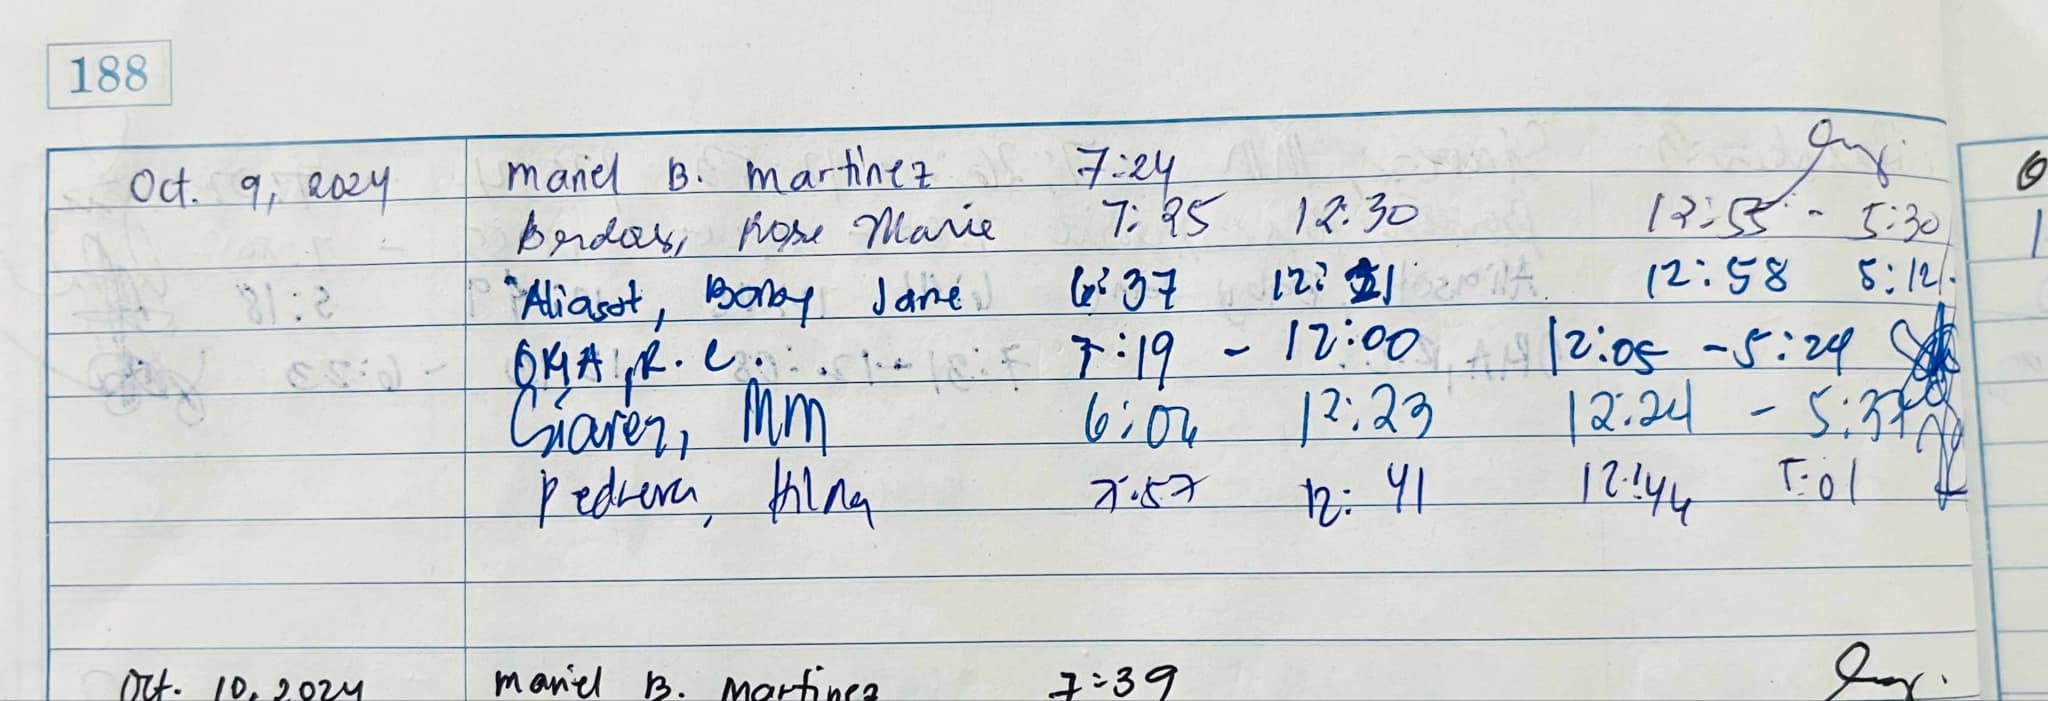 188
Oct. 9, 2024 Mariel B. Martinez 7:24
Berdos, Rose Marie 7:25 12:30 12:55 - 5:30
Aliasot, Bonby Jane 6:37 12:21 12:58 5:12
OMA, R. C. 7:19 - 12:00 12:05 - 5:24
Giarez, MM 6:02 12:23 12:24 - 5:37
Pedrera, Hilna 7:57 12:41 12:44 5:01
Oct. 10, 2024 Mariel B. Martinez 7:39